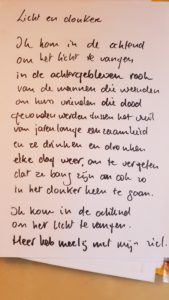 Licht en donker
Ik kom in de ochtend
om het licht te vangen
in de achtergebleven rook
van de mannen die weenden
om hun vrienden die dood
gevonden werden tussen het vuil
van jarenlange eenzaamheid
en ze drinken en dronken
elke dag weer, om te vergeten
dat ze bang zijn om ook zo
in het donker heen te gaan.
Ik kom in de ochtend
om het licht te vangen.
Meer heb mijn ziel.